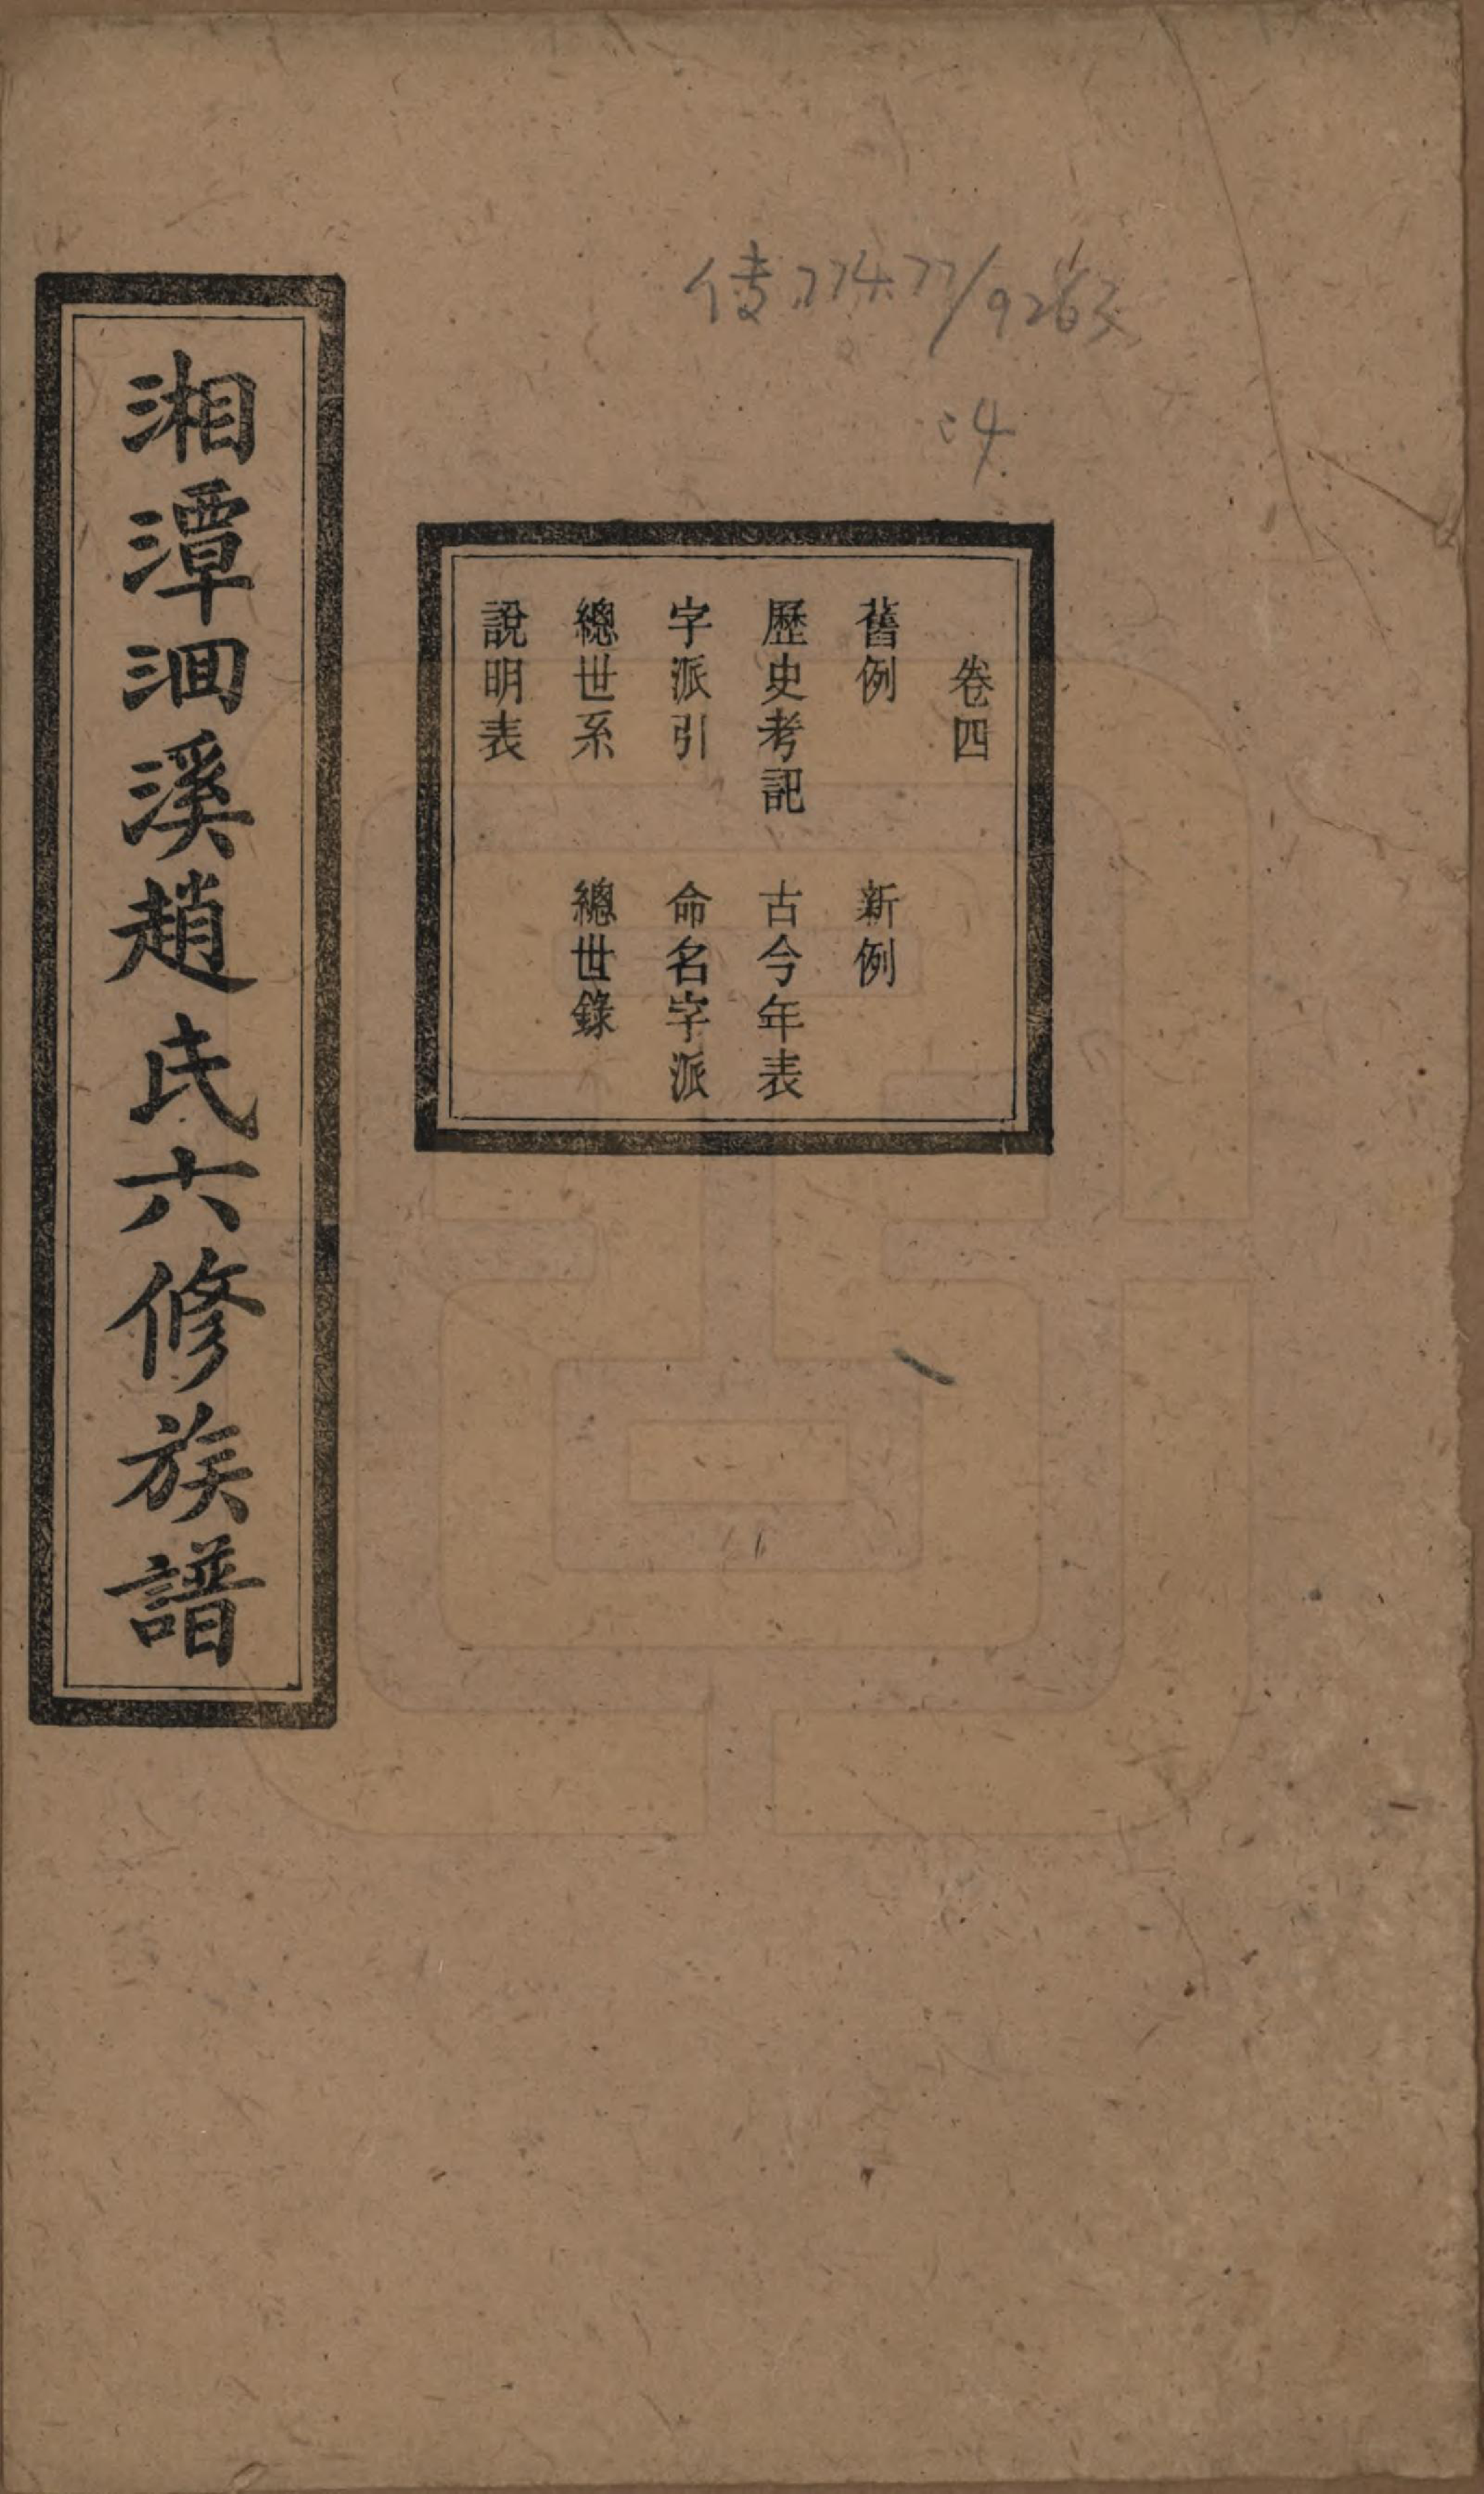 傳 774.77/9263
:4
卷四
舊例 新例
歷史考記 古今年表
字派引 命名字派
總世系 總世錄
說明表
湘潭洄溪趙氏六修族譜